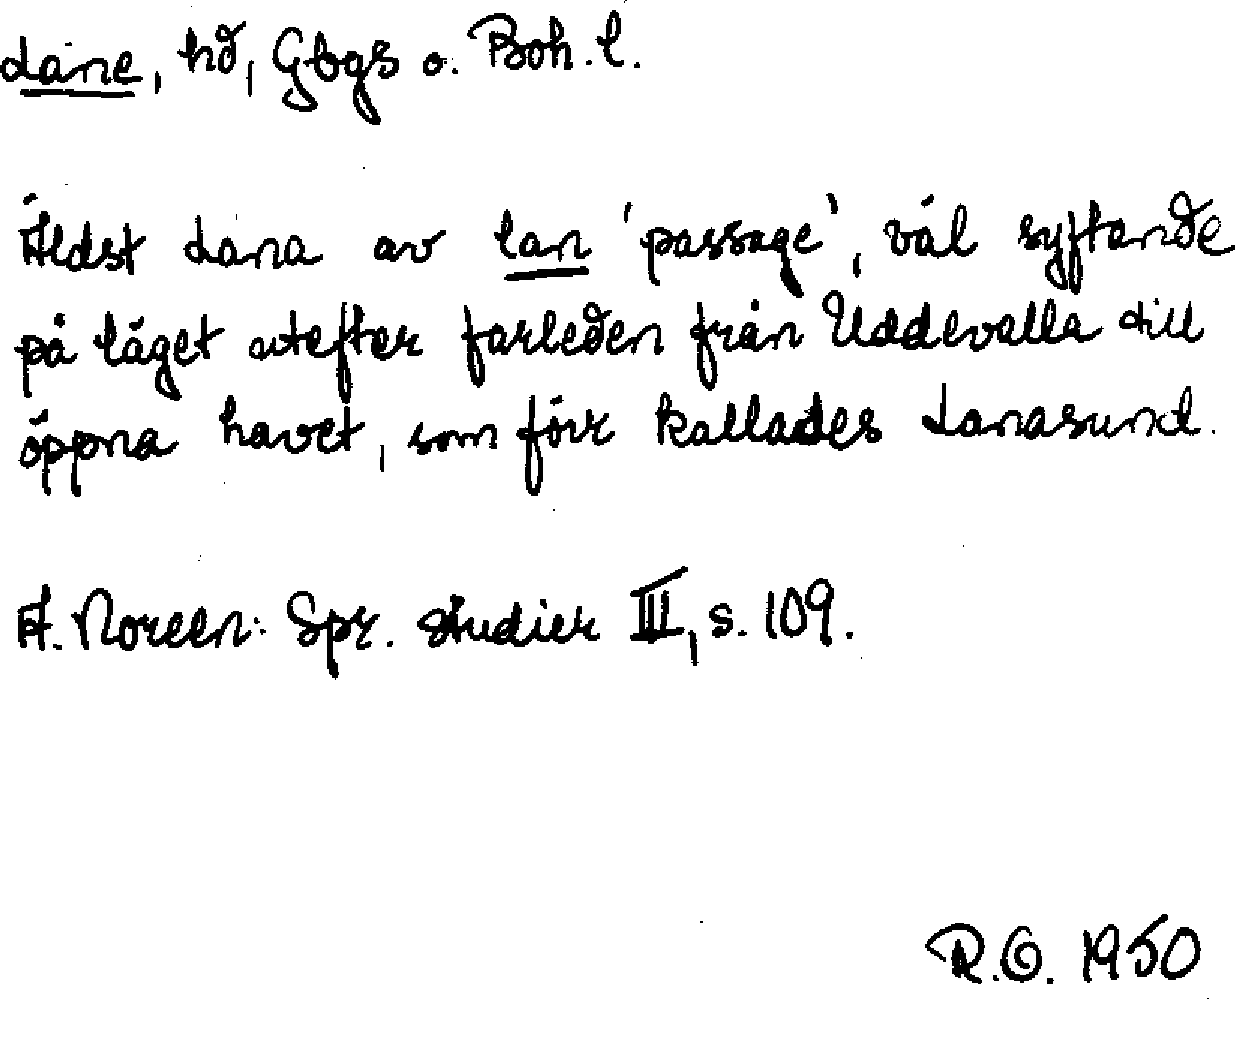 Lane, hd, Gbgs o. Boh. l.
Äldst Lana av lan 'passage', väl syftande
på läget utefter farleden från Uddevalla till
öppna havet, som förr kallades Lanasund.
A. Noreen: Spr. studier III, s. 109.
R.O. 1950